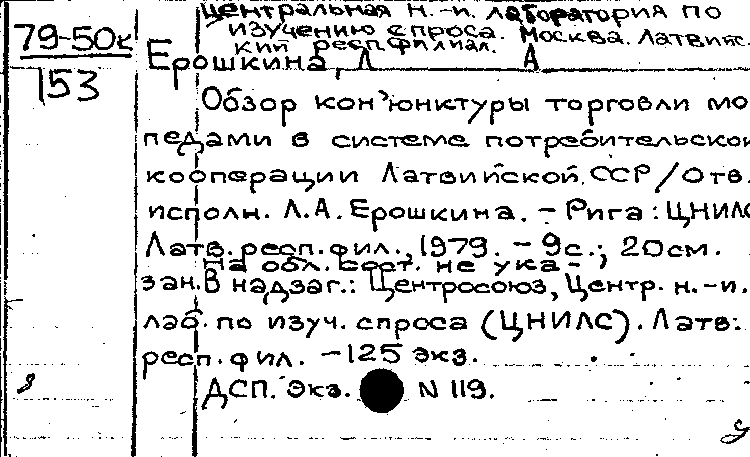 Центральная н.-и. лаборатория по
изучению спроса. Москва. Латвийс.
кий респ филиал.
79-50к
153
Ерошкина, Л А
Обзор кон'юнктуры торговли мо
педами в системе потребительской
кооперации Латвийской ССР/Отв.
исполн. Л.А. Ерошкина. - Рига: ЦНИЛС
Латв. респ. фил., 1979. - 9с.; 20см.
На обл. сост. не ука-
зан. В надзаг.: Центросоюз, Центр. н.-и.
лаб. по изуч. спроса (ЦНИЛС). Латв.
респ. фил. - 125 экз.
ДСП. Экз. N 119.